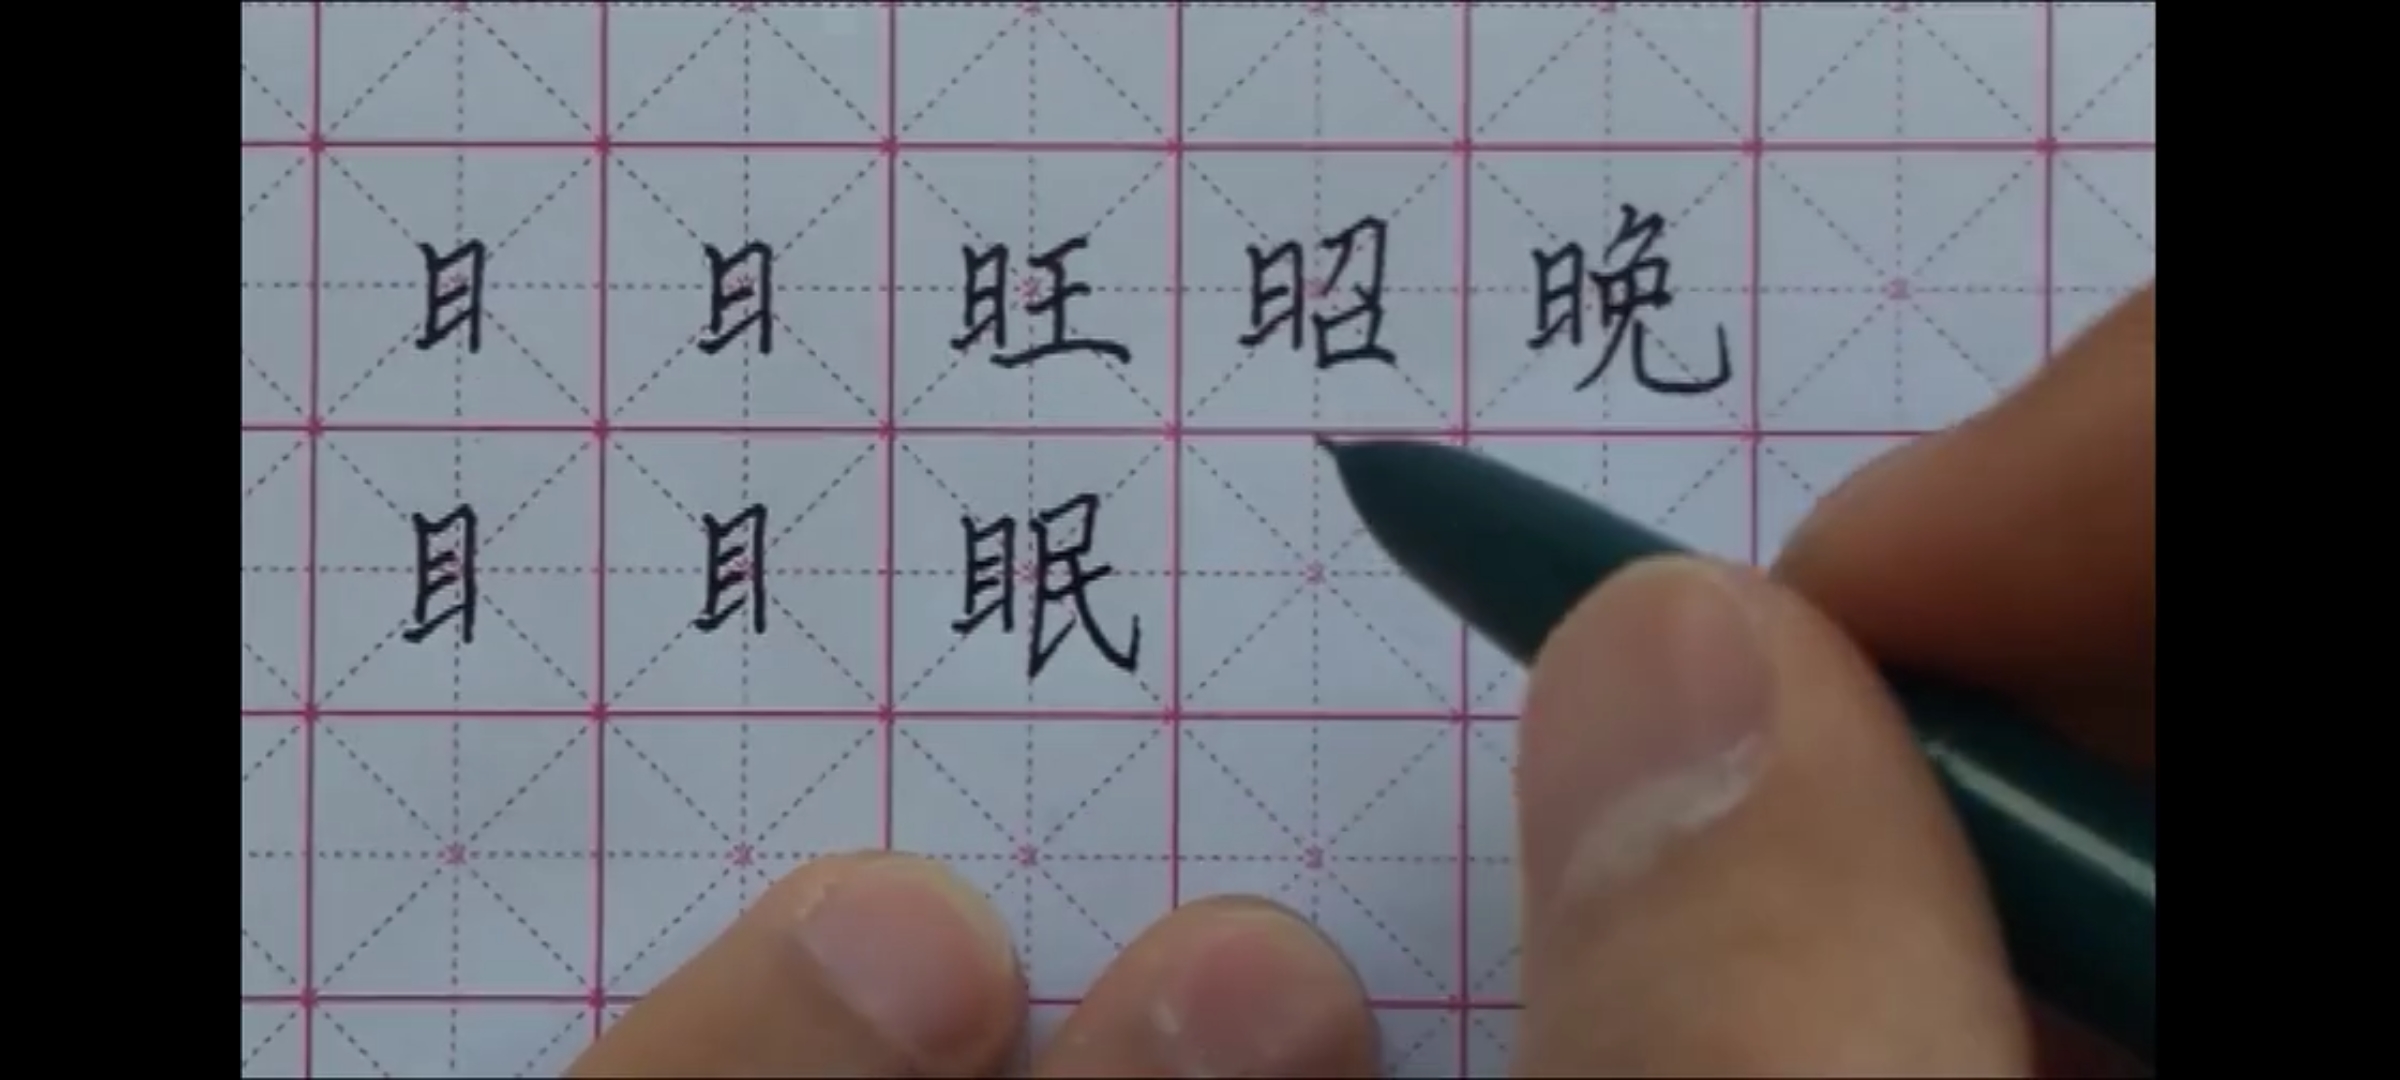 日 日 旺 昭 晚
目 目 眠